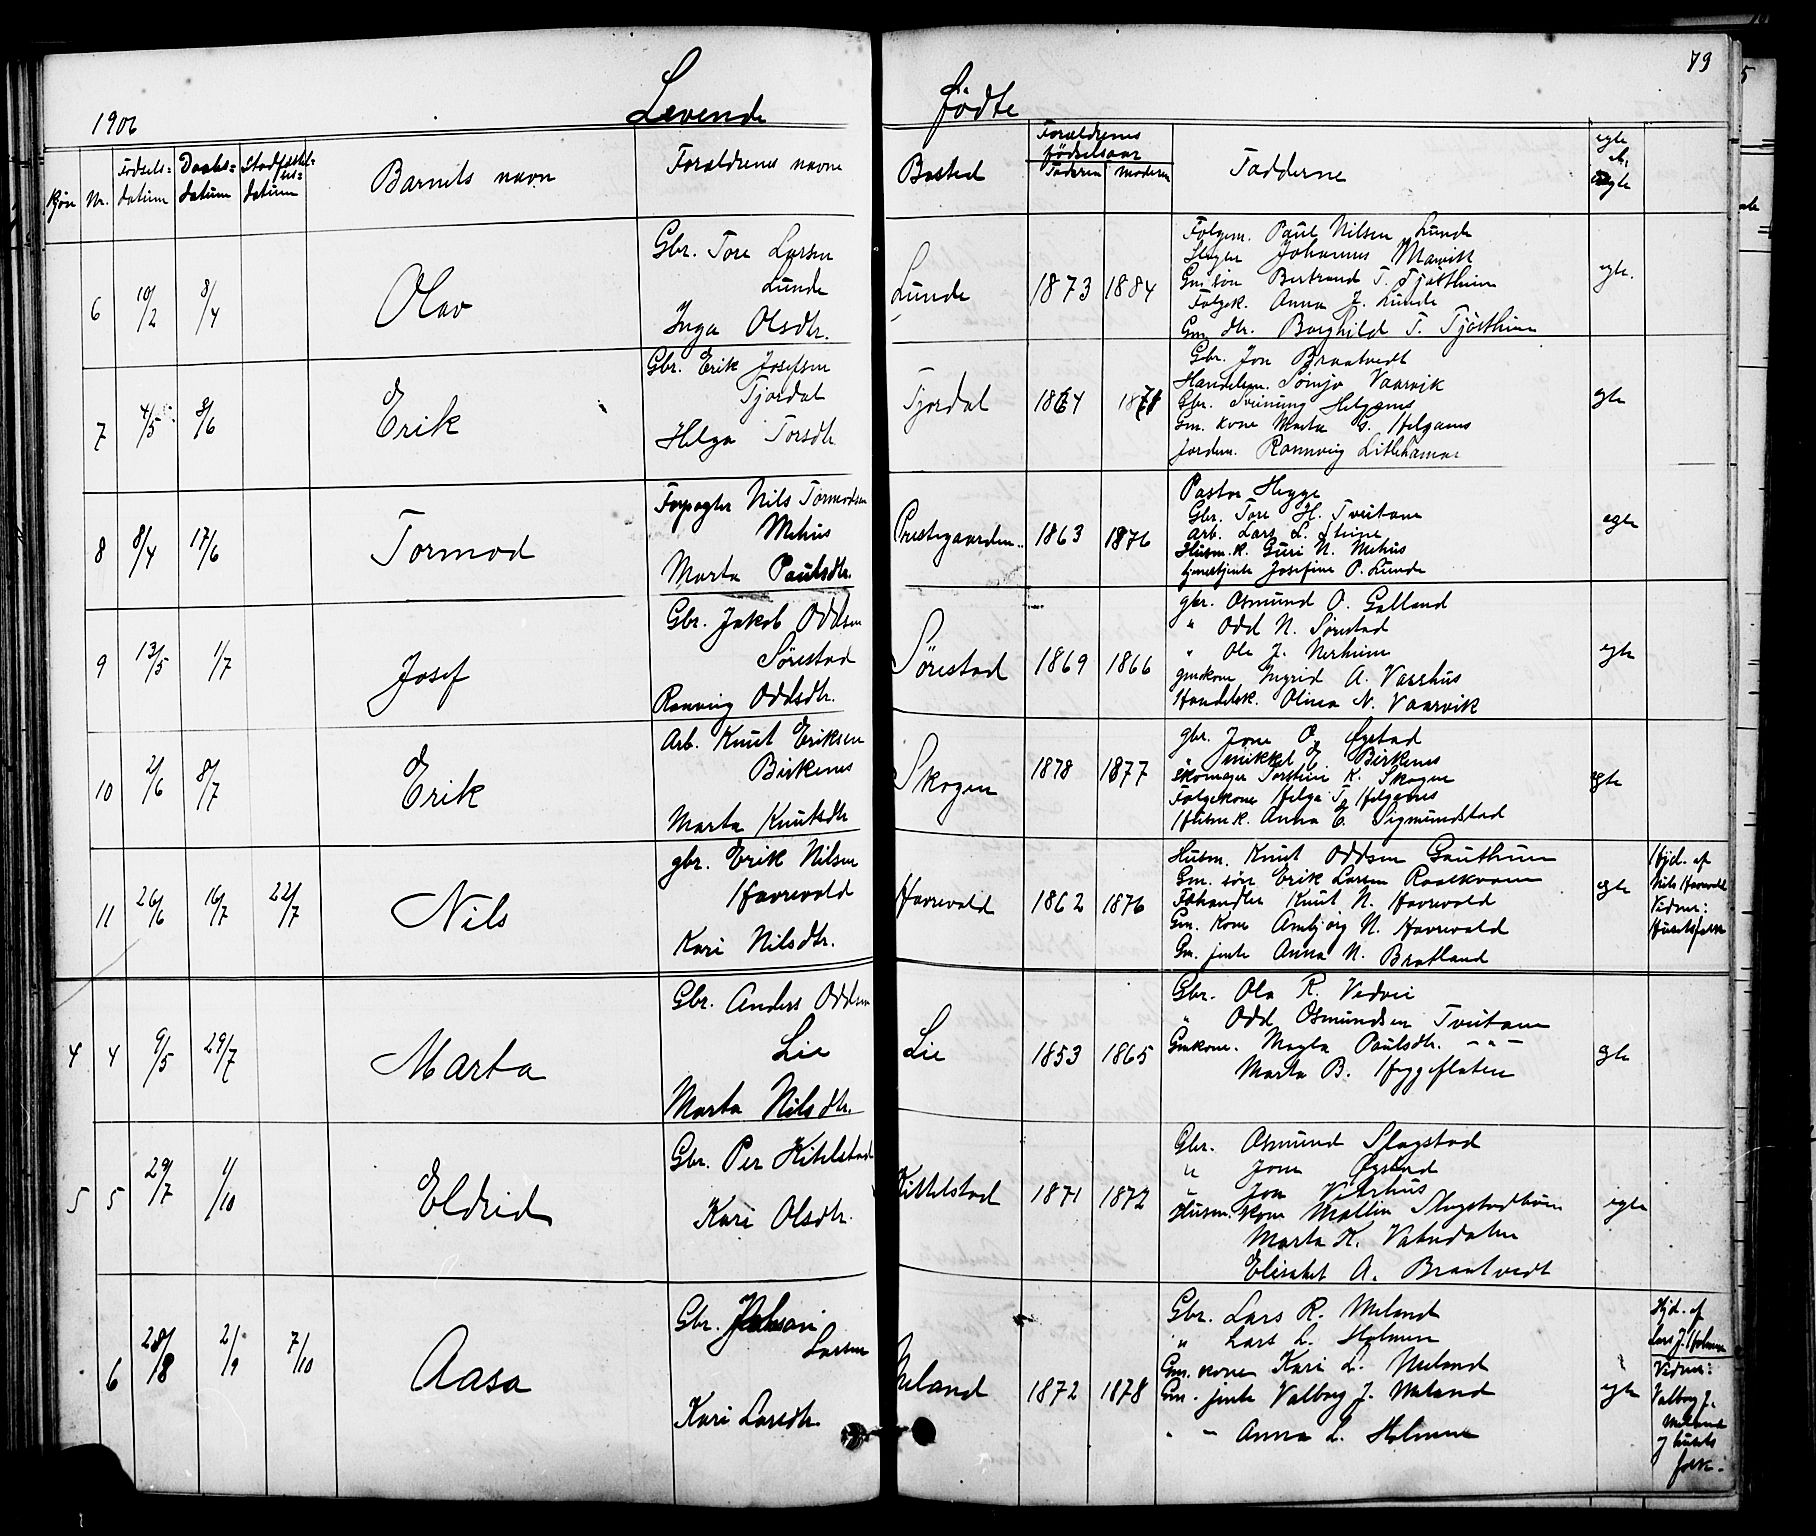 79
1906
Levende
fødte
Kjøn
Nr.
Fødsels-
datum
Daabs-
datum
Stadfæstel-
ses-
datum
Barnets navn
Forældrenes navne
Bosted
Forældrenes
fødselsaar
Faderen Moderen
Fadderne
egte
el.
uegte
6 10/2 8/4 Olav
Gbr. Tore Larsen
Lunde
Inga Olsdtr.
Lunde 1873 1884
Følgem. Paul Nilsen Lunde
Johannes Marvik
Gm søn Bertrand T. Tjøsthein
Følgek. Anna J. Lunde
Gm. dtr. Borghild T. Tjøsthein
egte.
7 4/5 8/6 Erik
Gbr. Erik Josefsen
Tjordal
Helga Torsdtr.
Tjordal 1864 1871
Gbr. Jon Braatvedt
Handelsm. Sømjo Vaarvik
Gbr. Sveinung Helganes
Gm. kone Marta S. Helganes
Jordm. Rannveig Litlehamar
egte
8 8/4 17/6 Tormod
Forpagter Nils Tormodsen
Mehus
Marta Paulsdtr.
Prestegaarden 1863 1876
Pastor Hegge
Gbr. Tore H. Tveitane
Arb. Lars L. Steine
Husm. k. Guri N. Mehus
tjenestjente Josefine P. Lunde
egte
9 13/5 1/7 Josef
Gbr. Jakob Oddsen
Sørestad
Ranveig Oddsdtr.
Sørestad 1869 1866
gbr. Osmund O. Galland
" Odd N. Sørestad
" Ole J. Nerheim
gmkone Ingrid A. Vaarhus
Handelsk. Olina N. Vaarvik
egte
10 2/6 8/7 Erik
Arb. Knut Eriksen
Birkenes
Marta Knutsdtr
Skogen 1878 1877
gbr. Jone O. Øystad
" Mikkel E. Birkenes
Skomager Torstein K. Skogen
Følgekone Helga T. Helganes
Husm k. Anna E. Sigmundstad
egte
11 26/6 16/7 22/7 Nils
gbr. Erik Nilsen
Havrevold
Kari Nilsdtr.
Havrevold 1862 1876
Husm. Knut Oddsen Gauthun
Gm. søn Erik Larsen Raaekvam
Fehandler Knut N. Havrevold
Gm. Kone Ambjørg N. Havrevold
Gm. jente Anna N. Bratland
egte
Hjd. af
Nils Havrevold
Vidner:
Husetsfolk
4 4 9/5 29/7 Marta
Gbr. Anders Oddsen
Lie
Marta Nilsdtr.
Lie 1853 1865
Gbr. Ola R. Vedvei
" Odd Osmundsen Tveitane
Gmkone. Magla Paulsdtr. - " -
Marta B. Heggeflaten
egte
5 5 29/7 1/10 Eldrid
Gbr. Per Kitelstad
Kari Olsdtr.
Kittelstad 1871 1872
Gbr. Osmund Slogstad
" Jone Øystad
" Jon Vaarhus
Husm. kone Mallin Slogstadhavn
Marta K. Vatndalen
Elisabet A. Braatvedt
egte
6 28/8 2/9 7/10 Aasa
Gbr.
Larsen
Kari Larsdtr.
Meland 1872 1878
Gbr. Lars R. Meland
" Lars L. Holmen
Gm. kone Kari L. Meland
Gm. jente Valborg J. Meland
" - Anna L. Holmen
egte
Hjd. af
Lars J. Holmen
Vidner:
Valborg J.
Meland
og husets
folk.